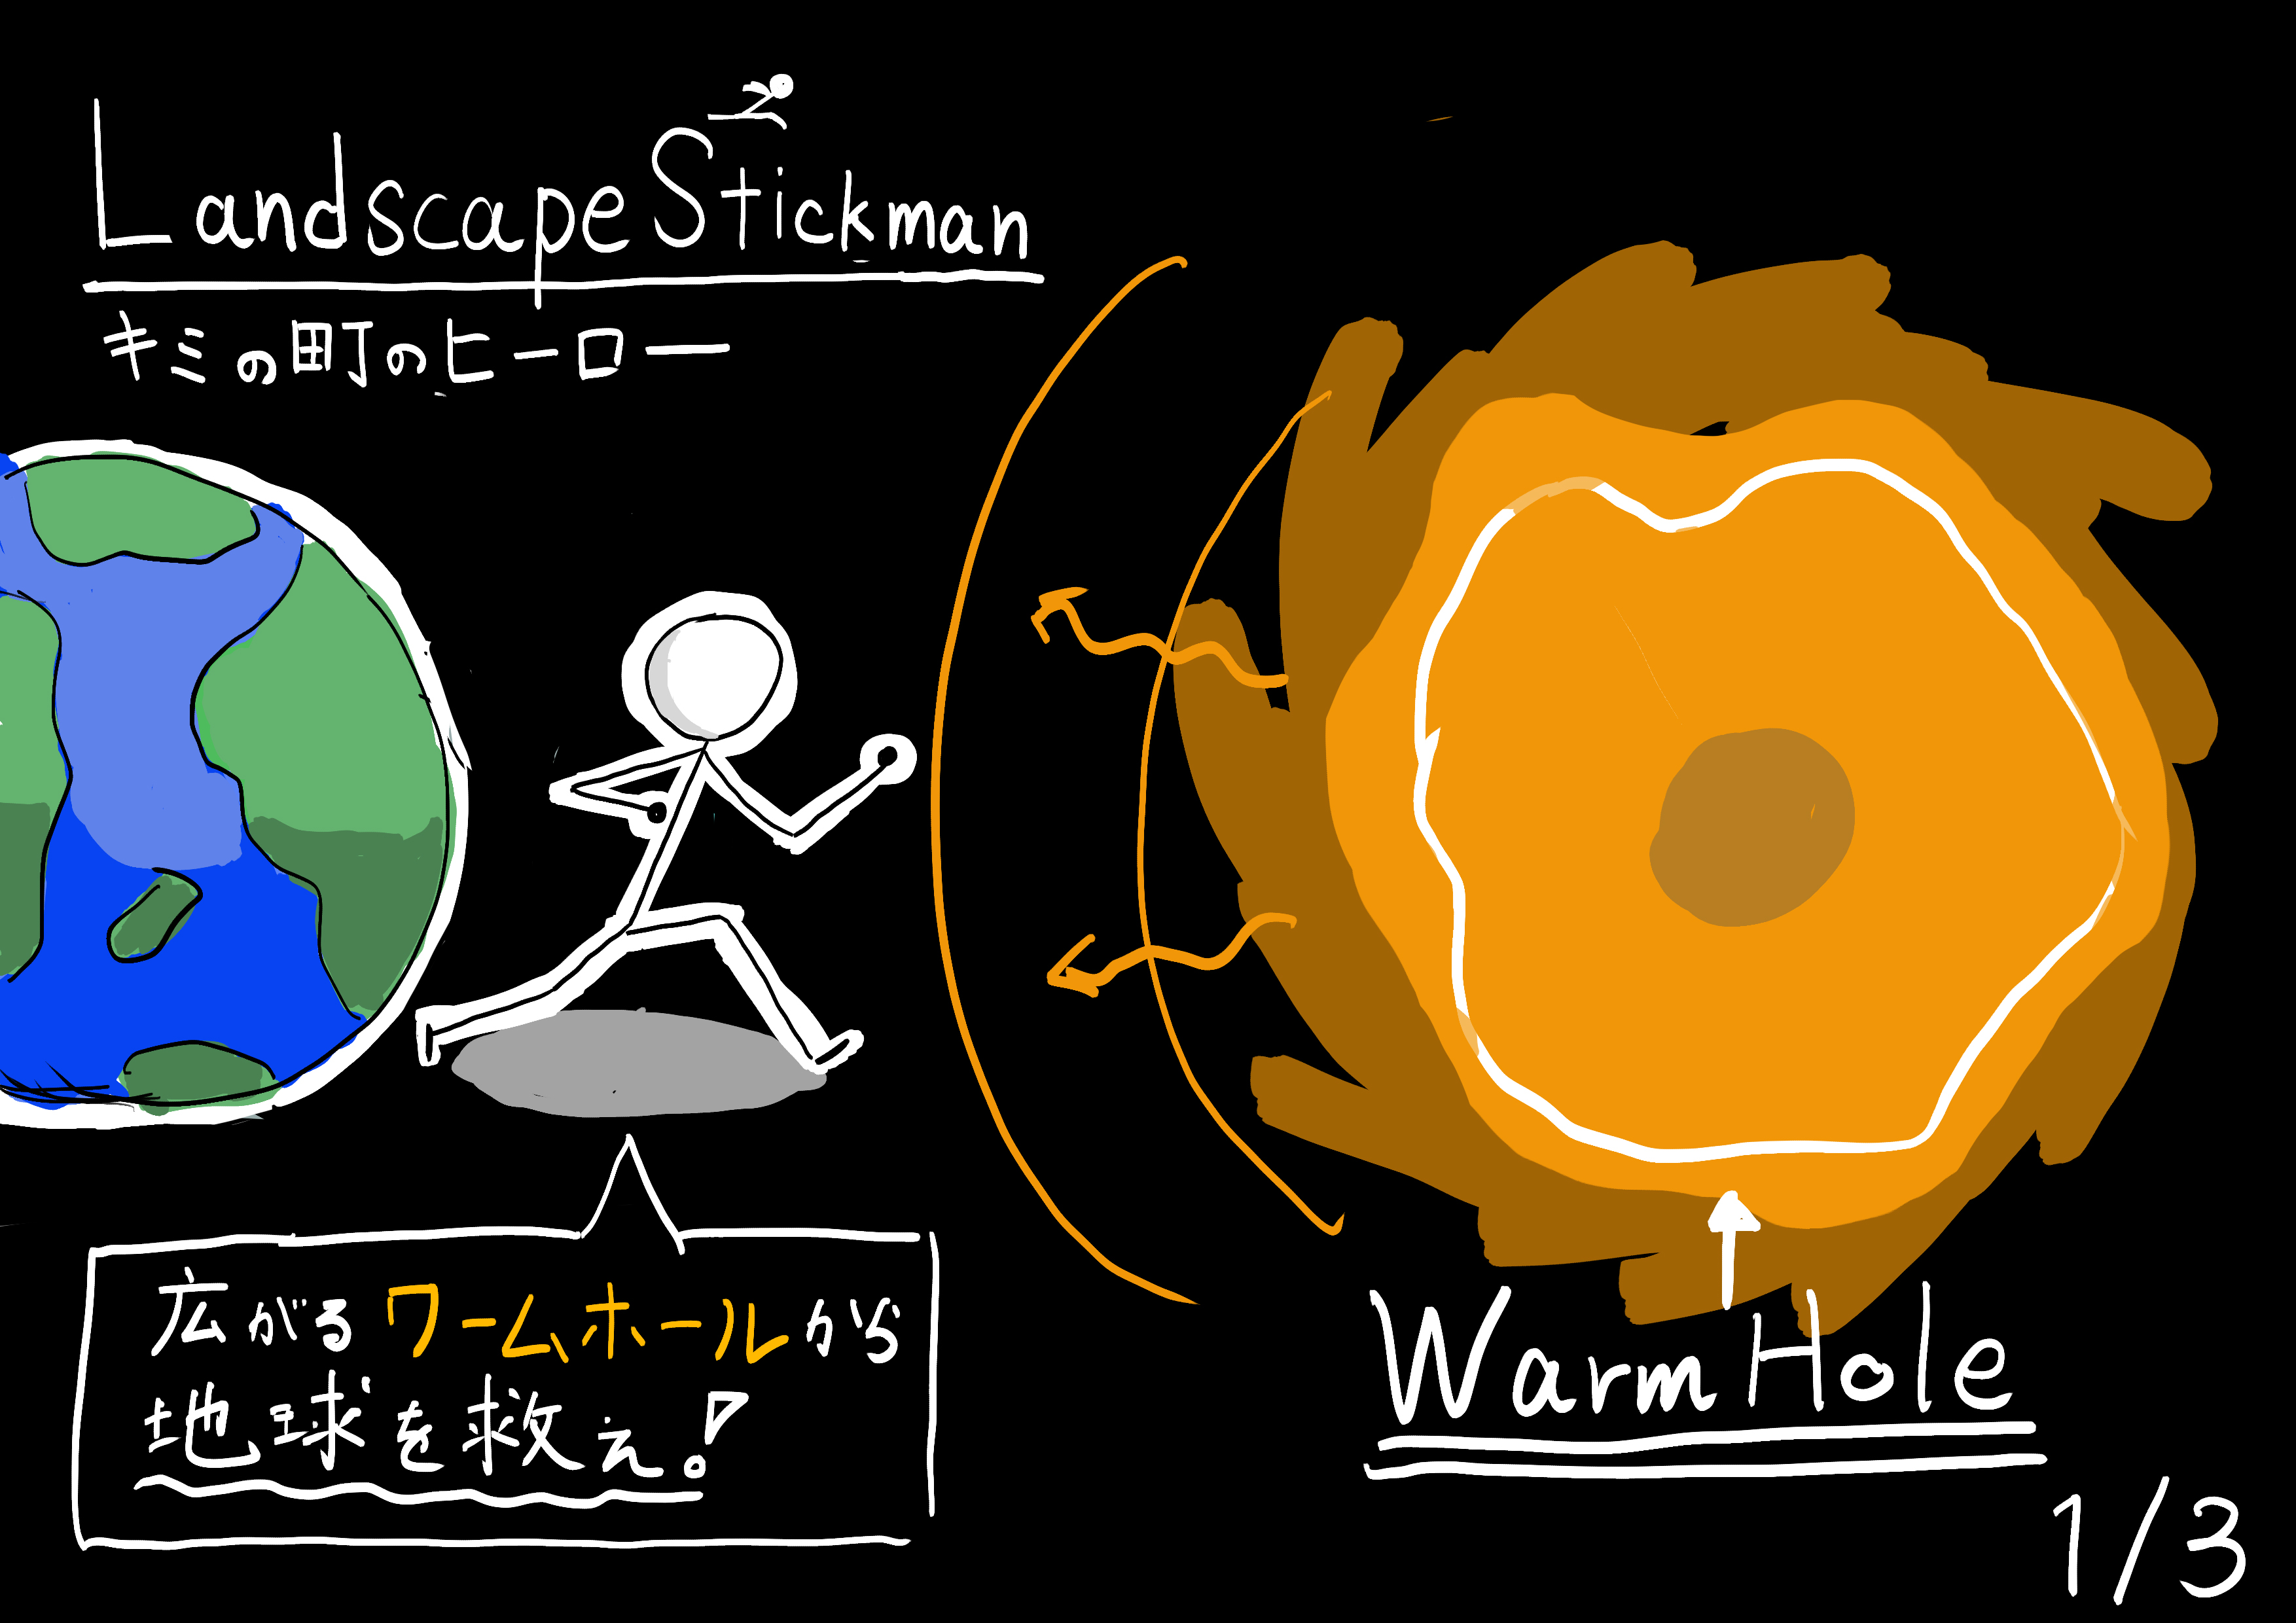 LandscapeStickman
キミの町のヒーロー
広がるワームホールから
地球を救え!
WarmHole
1/3